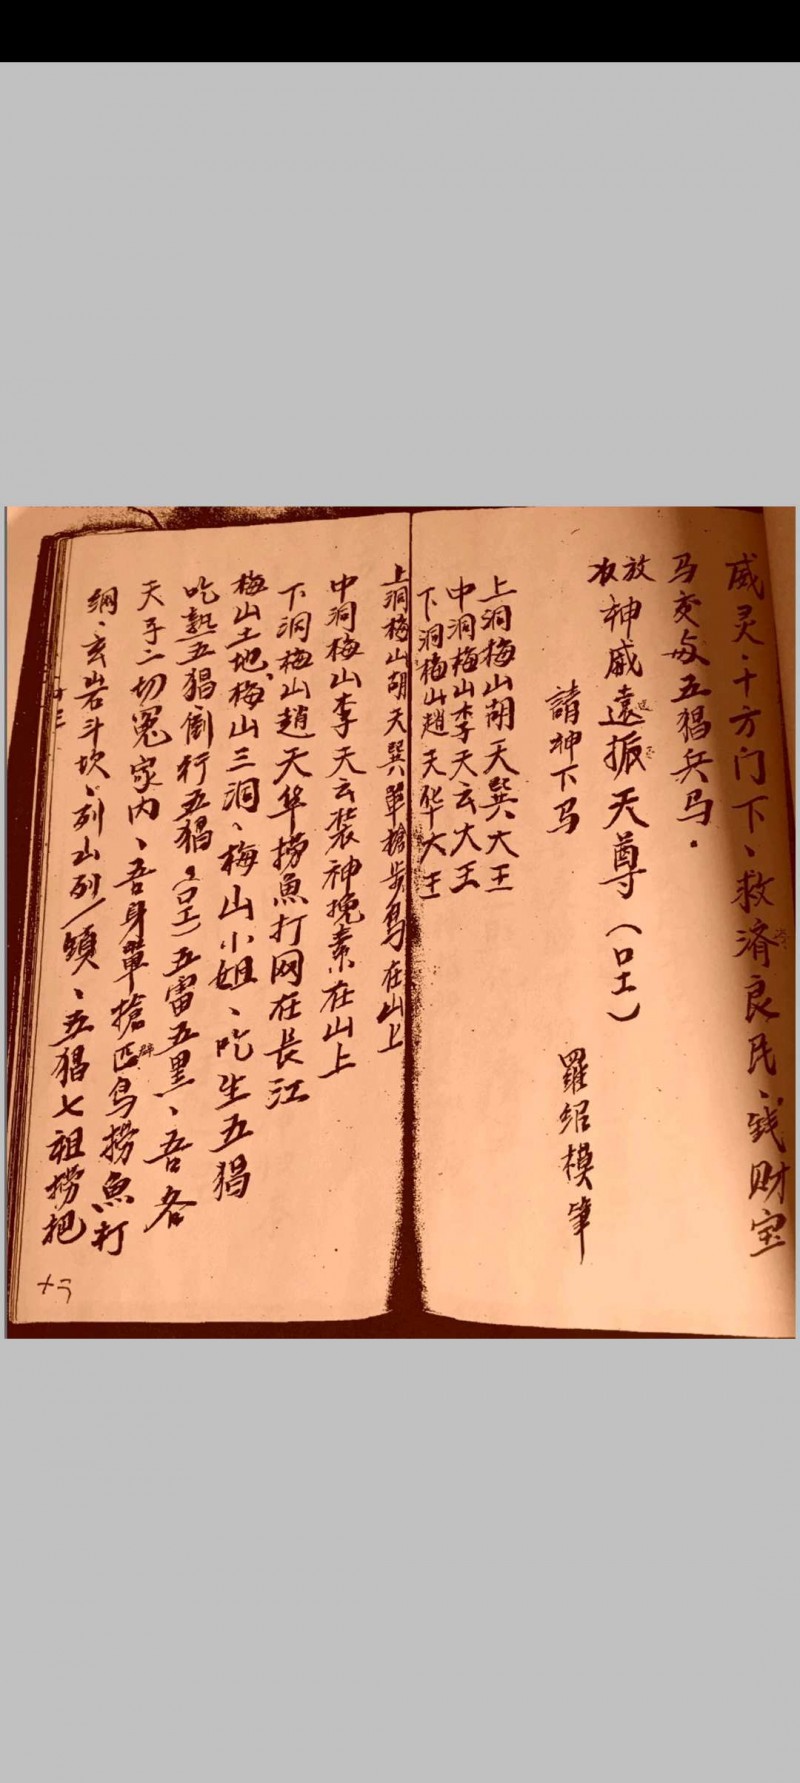 威灵、十方门下、救济良民、钱财宝
马交与五猖兵马．
放
神威遠振天尊（口工）
請神下马
羅绍模筆
上洞梅山胡天巽大王
中洞梅山李天云大王
下洞梅山趙天华大王
上洞梅山胡天巽單搶步鸟在山上
中洞梅山李天云装神挽素在山上
下洞梅山趙天华撈魚打网在長江
梅山土地、梅山三洞、梅山小姐、吃生五猖
吃熟五猖倒行五猖、（口工）五雷五黑、吾各
天子二切冤家内、吾身單搶匹鸟撈魚打
網、玄岩斗坎、列山列嶺、五猖七祖撈把